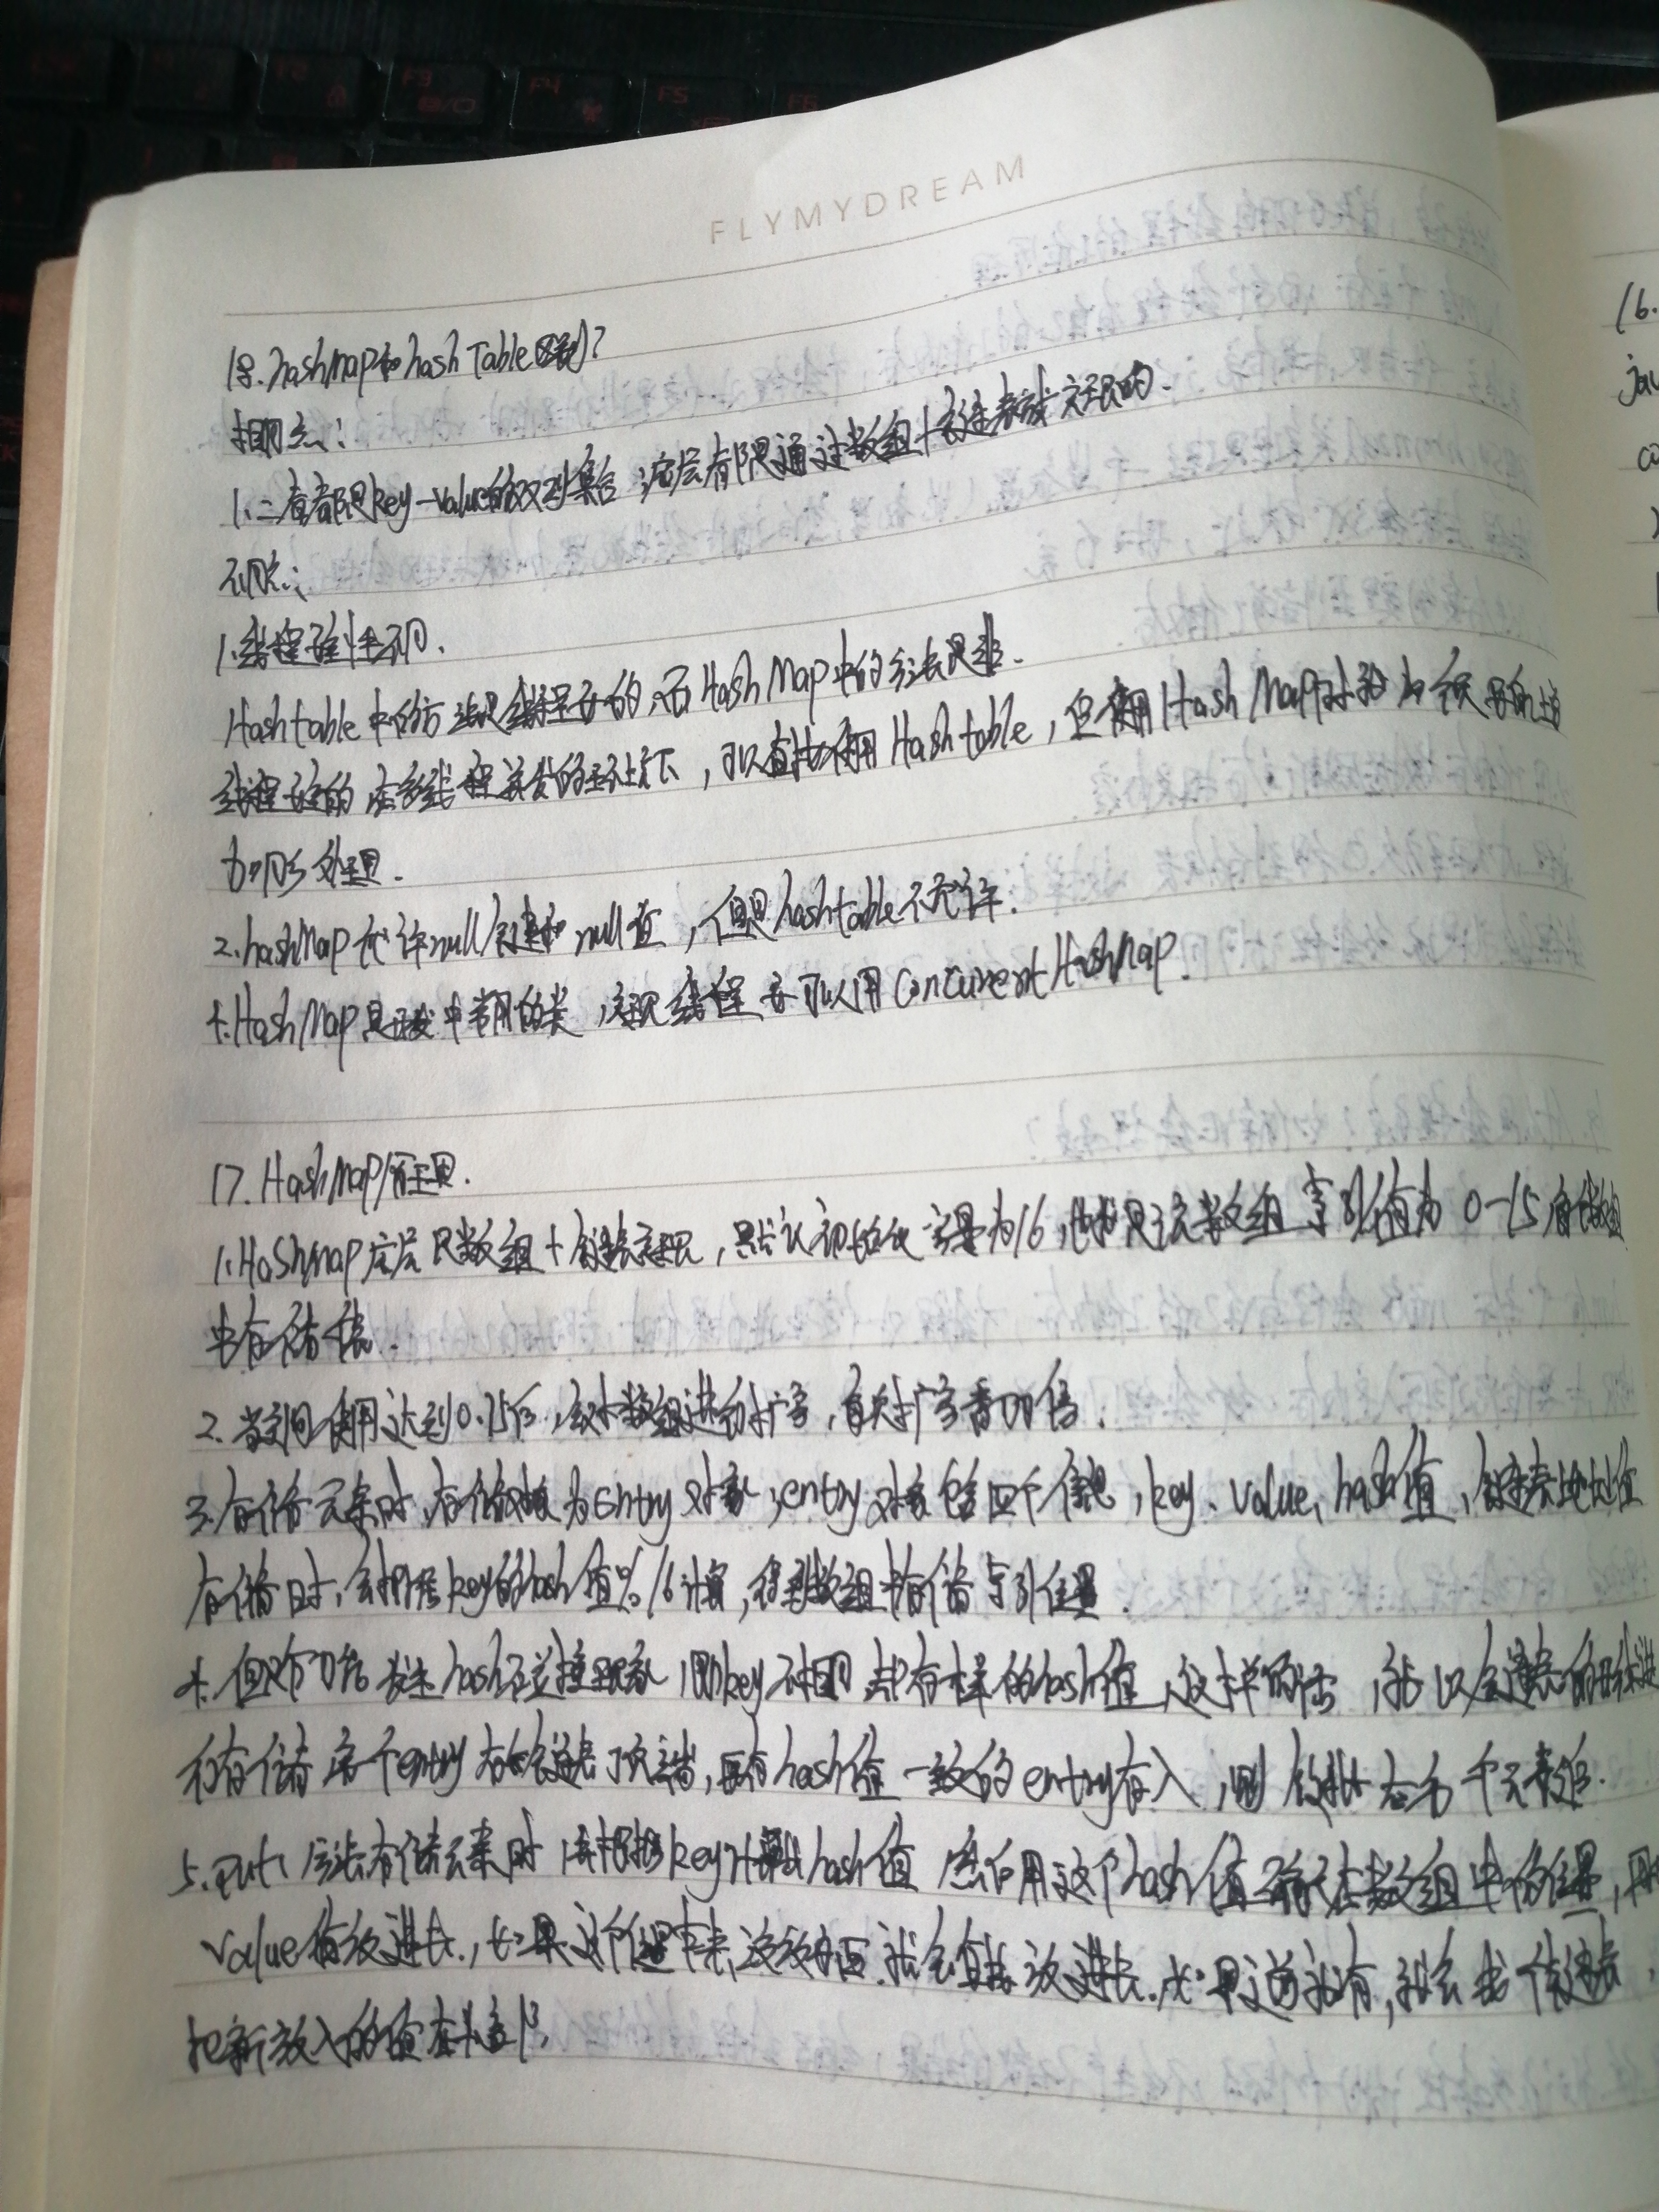 FLYMYDREAM
18. hashMap和hashTable区别?
相同点:
1.二者都是key-value的双列集合,底层都是通过数组+链表实现的.
不同点:
1.线程安全性不同.
Hashtable中的方法是线程安全的,而HashMap中的方法是非
线程安全的 在多线程并发的环境下,可以直接使用Hashtable,但使用HashMap时
加同步处理.
2.hashMap允许null键和null值,但是hashtable不允许.
4.HashMap是开发中常用的类,实现线程安全可以用ConcurrentHashMap.
17.HashMap原理.
1.HashMap底层是数组+链表实现,默认初始化容量为16,也就是该数组索引值为0-15
中存储.
2.当空间使用达到0.75后,会对数组进行扩容,
3.存储元素时,存储对象为entry对象,entry对象包含四个信息,key、value、hash值,链表地址值
存储时,会根据key的hash值%16计算,得到数组中存储索引位置.
4.但对 hash碰撞现象,即key不相同 却有一样的hash值,这样的话,就以链表的形式进
行存储 entry 在链表顶端,再有hash值一致的entry存入,则
5.put 方法存储元素时 key计算出hash值 然后用这个hash值确定在数组中的位置,再把
value值放进去,如果这个位置本来没放东西.就会直接放进去.如果之前就有,就会 链表,
把新放入的值在头部.
16.